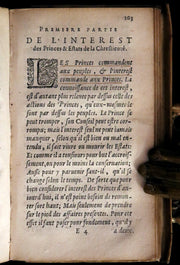 103
PREMIERE PARTIE
DE L'INTEREST
des Princes & Estats de la Chrestienté.
LES Princes commandent
aux peuples, & l'interest
commande aux Princes. La
connoissance de cet interest,
est d'autant plus relevée par dessus celle des
actions des Princes, qu'eux-mesmes le sont
par dessus les peuples. Le Prince se
peut tromper, son Conseil peut estre cor-
rompu; mais l'interest seul ne peut jamais
manquer, selon qu'il est bien ou mal en-
tendu, il fait vivre ou mourir les Estats.
Et comme il a tousiours pour but l'accroisse-
ment, ou pour le moins la conservation;
Aussi pour y parvenir faut-il, qu'il se
change selon le temps. De sorte que pour
considerer l'interest des Princes d'aujour-
d'hui, il n'est point besoin de remonter
fort haut; Mais seulement de prendre
le pied des affaires presentes. Pour cet
effect il faut poser pour fondement, qu'il y
E 4 a deux